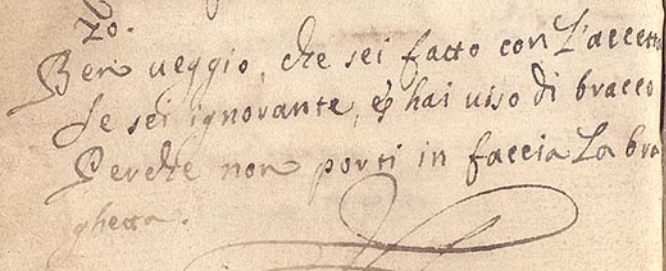 zo.
Ben ueggio, che sei fatto con L'accetta
Se sei ignorante, & hai uiso di bracco
Perche non porti in faccia La bra
ghetta.